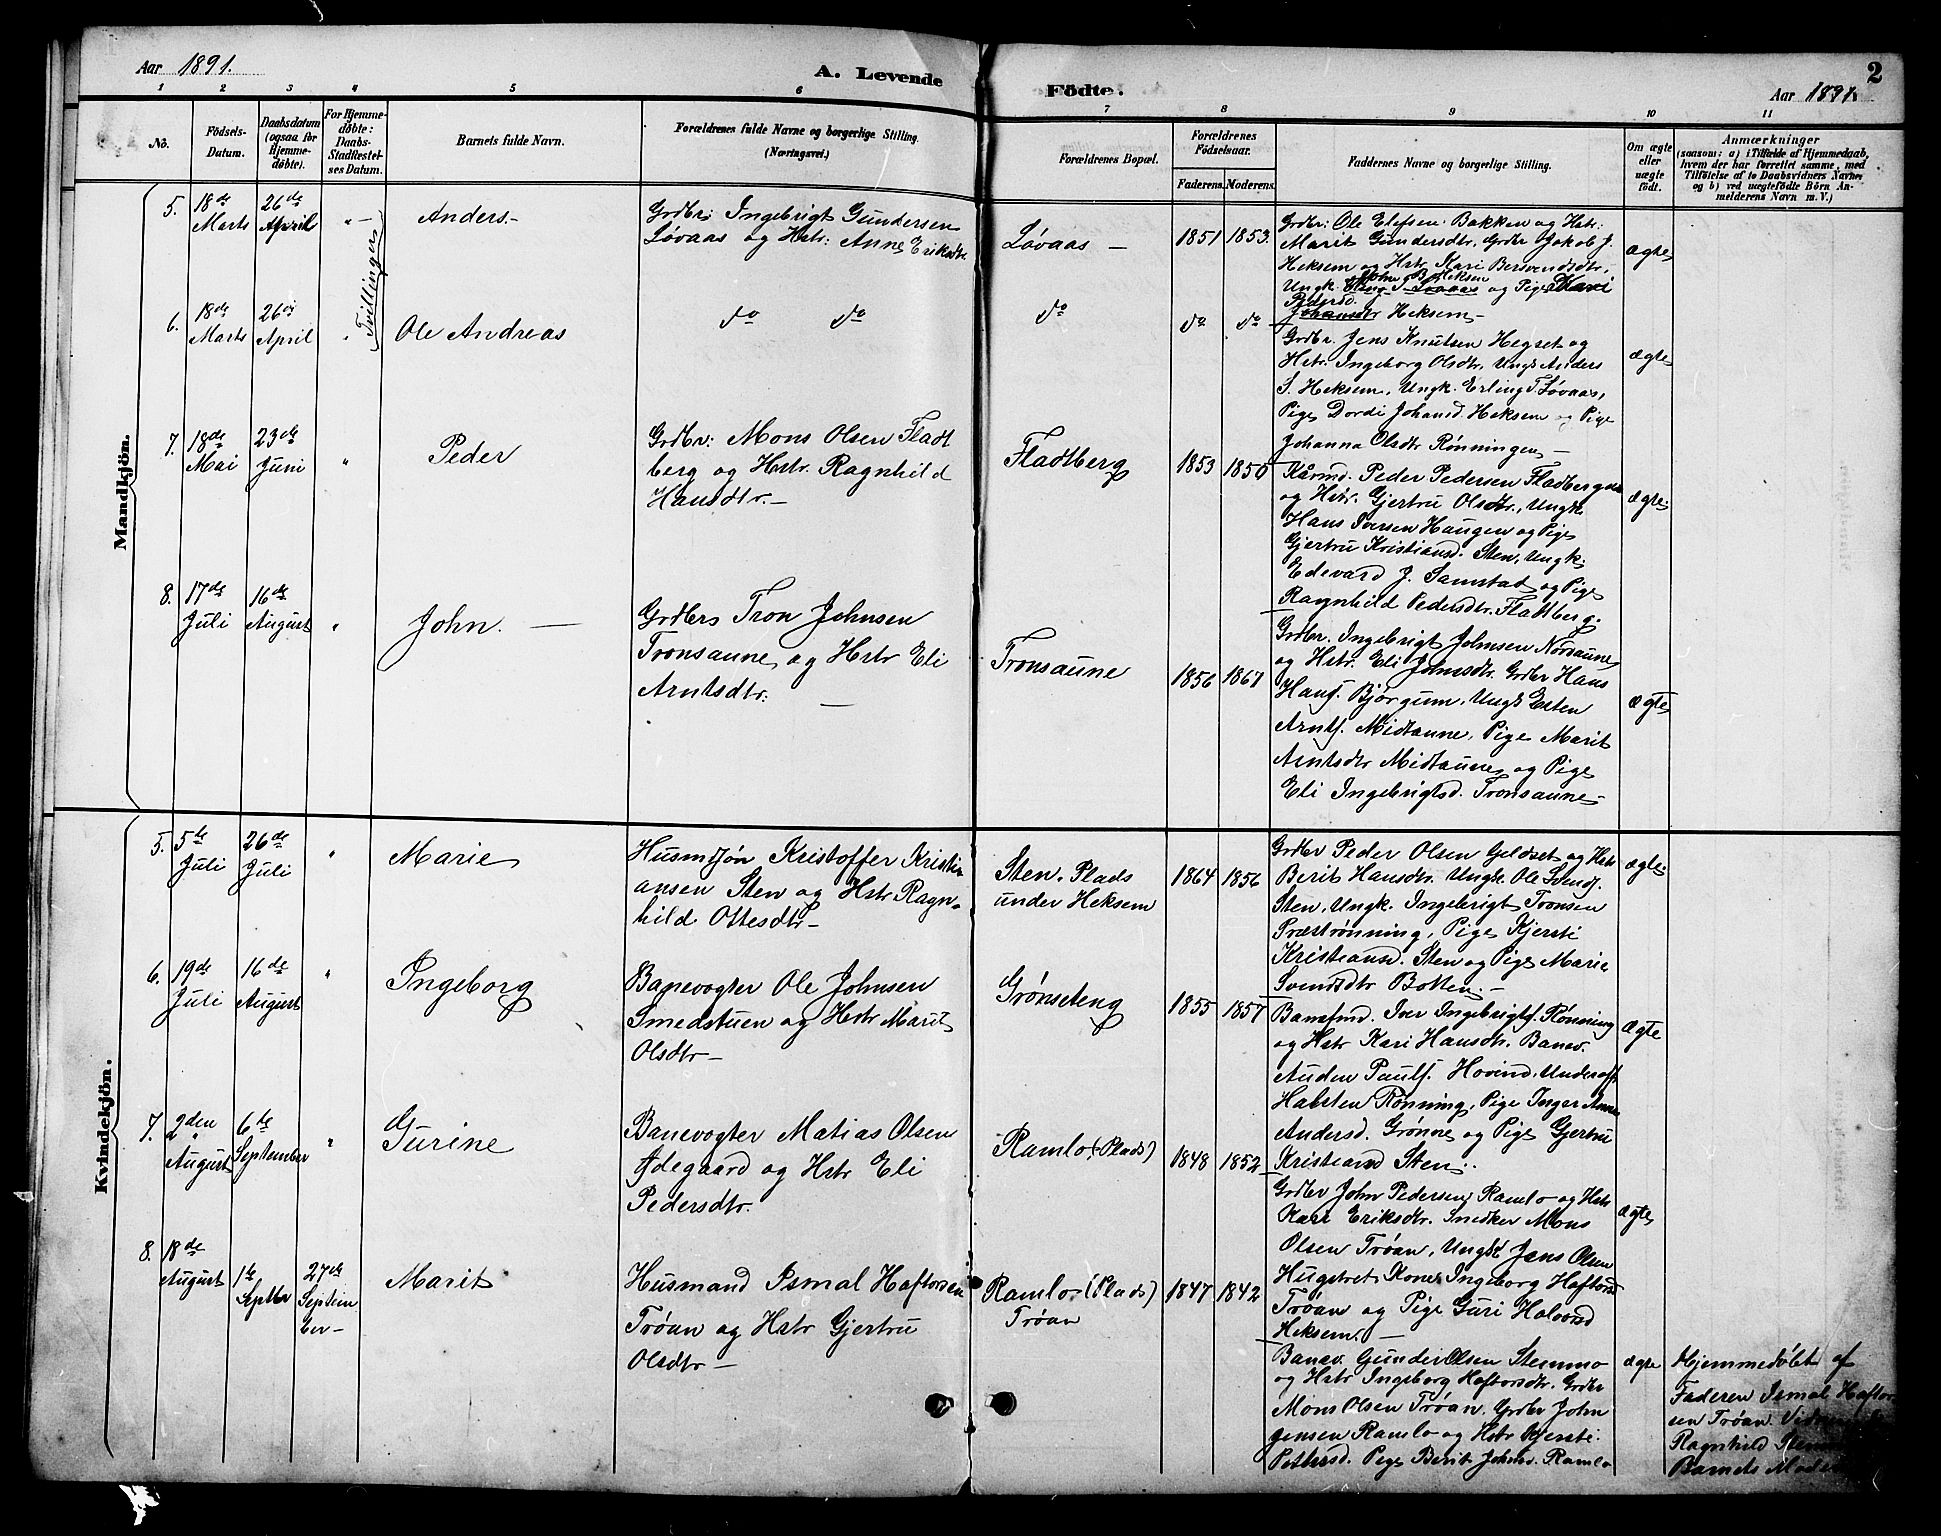 Aar 1891.
A. Levende
Födte.
2
Aar 1891.
1 2 3 4 5 6 7 8 9 10 11
No.
Födsels-
Datum.
Daabsdatum
(ogsaa for
Hjemme-
döbte).
For Hjemme-
döbte:
Daabs-
Stadfæstel-
ses Datum.
Barnets fulde Navn.
Forældrenes fulde Navne og borgerlige Stilling.
(Næringsvei.)
Forældrenes Bopæl.
Forældrenes
Födselsaar.
Faderens. Moderens.
Faddernes Navne og borgerlige Stilling.
Om ægte
eller
uægte
födt.
Anmærkninger
(saasom: a) i Tilfælde af Hjemmedaab,
hvem der har forrettet samme, med
Tilföielse af to Daabsvidners Navne
og b) ved uægtefödte Börn An-
melderens Navn m. V.)
Mandkjön.
5.
18de
Marts
26de
April
"-
Tvillinger
Anders-
Grdbr: Ingebrigt Gundersen
Løvaas og Hstr: Anne Eriksdtr
Løvaas -
1851
1853.
Grdbr: Ole Elefsen Bakken og Hstr:
Marit Gundersdtr, Grdbr Jakob J.
Heksem og Hstr Kari Bersvendsdtr,
John B. Heksem
Ungk. Løvaas og Pige Kari
Pedersd.
Johansdtr Heksem-
ægte
6.
18de
Marts
26de
April
"
Ole Andreas
do do
do
do
do
Grdbr. Jens Knutsen Hegset og
Hstr. Ingeborg Olsdtr, Ungk Anders
S. Heksem, Ungk. Erling T. Løvaas,
Pige Dordi Johansd. Heksem og Pige
Johanna Olsdtr Rønningen-
ægte
7.
18de
Mai
23de
Juni
"
Peder
Grdbr: Mons Olsen Fladt
berg og Hstr. Ragnhild
Hansdtr.-
Fladtberg
1853
1850
Kårmd. Peder Pedersen Fladberg
og Hstr. Gjertru Olsdtr., Ungk.
Hans Iversen Haugen og Pige
Gjertru Kristiansd. Sten, Ungk.
Edevard J. Samstad og Pige
Ragnhild Pedersdtr. Fladtberg.
ægte.
8.
17de
Juli
16de
August
"
John. -
Grdbr Tron Johnsen
Tronsaune og Hstr Eli
Arntsdtr. -
Tronsaune
1856
1867
Grdbr. Ingebrigt Johnsen Nordaune
og Hstr. Eli Johnsdtr. Grdbr Hans
Hansf. Bjørgum, Ungk Esten
Arntf. Midtaune, Pige Marit
Arntsdtr Midtaune og Pige
Eli Ingebrigtsd. Tronsaune-
ægte
Kvindekjön.
5.
5te
Juli
26de
Juli
"
Marie
Husm Kristoffer Kristi
ansen Sten og Hstr Ragn-
hild Ottesdtr-
Sten. Plads
under Heksem
1864
1856
Grdbr Peder Olsen Geldset og Hstr
Berit Hansdtr. Ungk. Ole Svendf.
Sten, Ungk. Ingebrigt Tronsen
Præstrønning, Pige Kjersti
Kristiansd. Sten og Pige Marie
Svendsdtr Botten.-
ægte
6.
19de
Juli
16de
August
"
Ingeborg
Banevogter Ole Johnsen
Smedstuen og Hstr Marit
Olsdtr-
Grønseteng
1855
1857
Baneformd. Iver Ingebrigtf. Rønning
og Hstr Kari Hansdtr. Banev.
Auden Paulf. Hovind, Underoff
Halsten Rønning, Pige Inger Anne
Andersd. Grønne og Pige Gjertru
Kristiansd Sten..
ægte
7.
2den
"
August
6te
September
"
Gurine
Banevogter Matias Olsen
Ødegaard og Hstr Eli
Pedersdtr.
Ramlo (Plads)
1848
1852
Grdbr John Pedersen Ramlo og Hstr
Kari Eriksdtr. Snedker Mons
Olsen Trøan, Ungk Jens Olsen
Kone Ingeborg Haftorsd
Trøan og Pige Guri Halvorsd
Heksem.-
ægte
8.
18de
August
1ste
Septbr
27de
Septem
ber-
Marit
Husmand Ismal Haftorsen
Trøan og Hstr Gjertru
Olsdtr-
Ramlo (Plads)
Trøan
1847
1842
Banev. Gunder Olsen Stemmo
og Hstr Ingeborg Haftorsdtr. Grdbr
Mons Olsen Trøan. Grdbr John
Jensen Ramlo og Hstr Kjersti
Pettersd. Pige Berit Johnsd. Ramlo
ægte
Hjemmedøbt af
Faderen Ismal Haftor
sen Trøan.
Ragnhild
Barnets